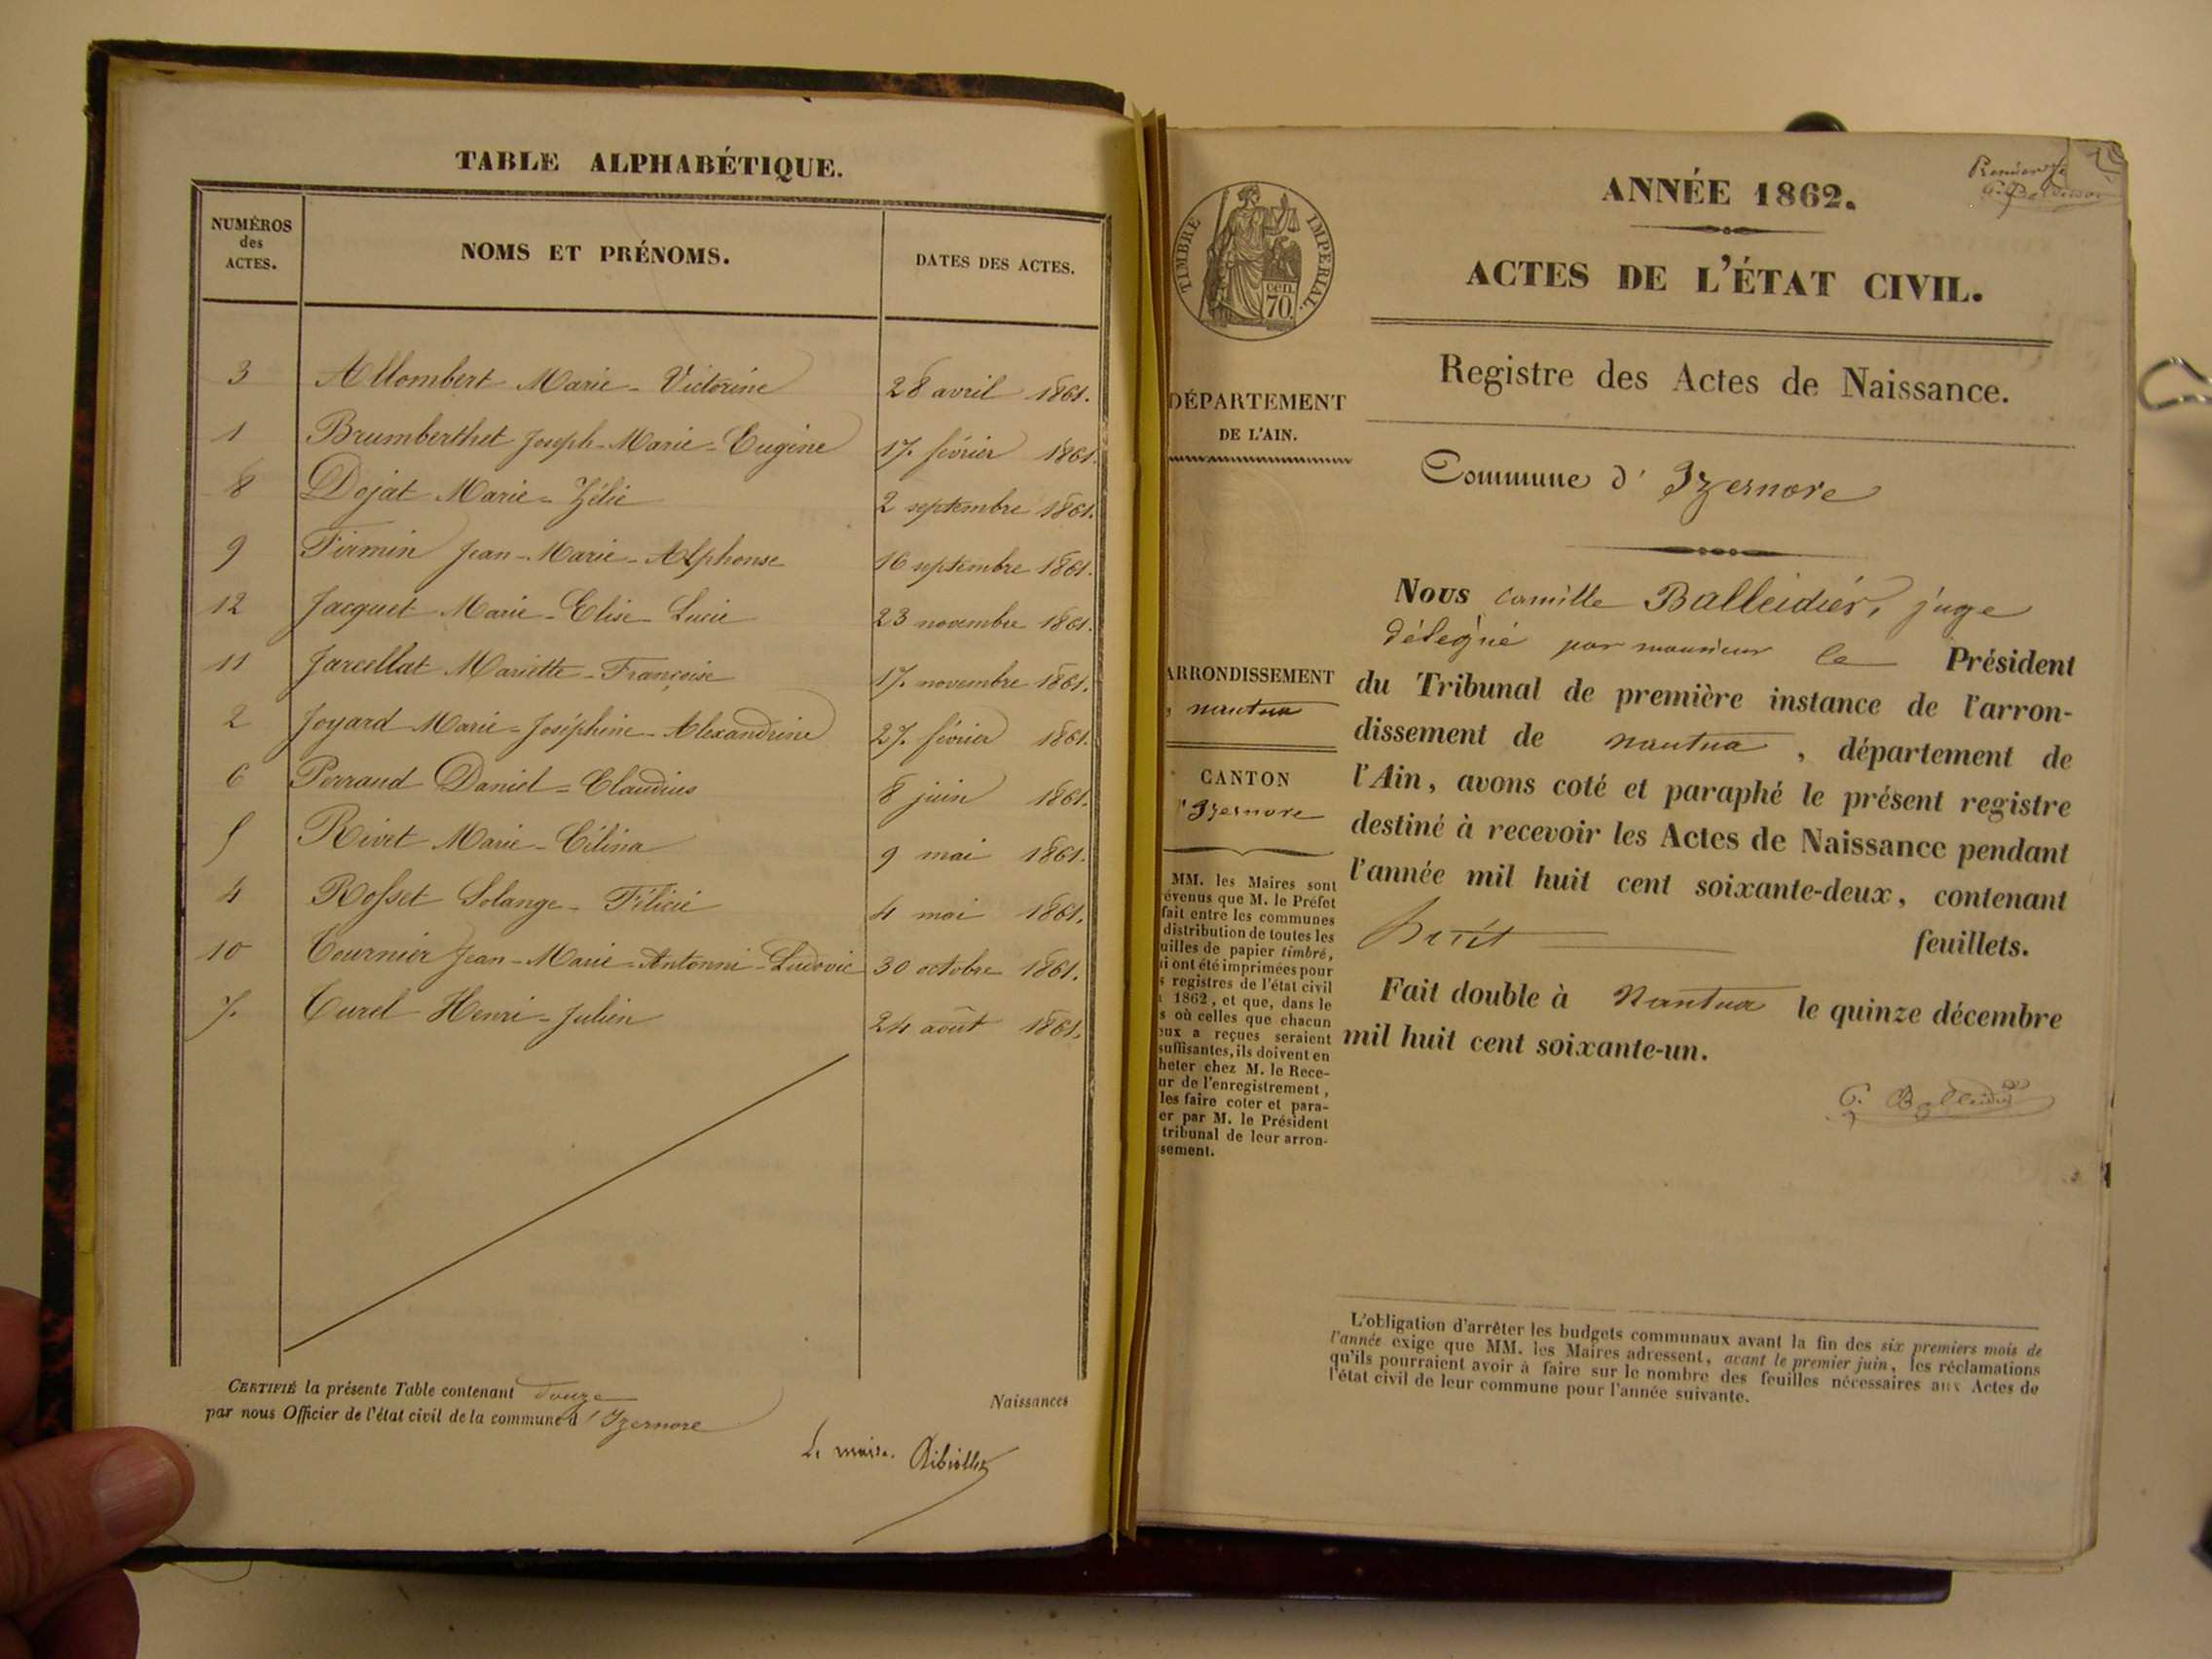 TABLE ALPHABÉTIQUE.
NUMÉROS
des
ACTES.
NOMS ET PRÉNOMS.
DATES DES ACTES.
3 Allombert Marie-Victorine 28 avril 1861.
1 Brumberthet Joseph-Marie-Eugène 17 février 1861.
8 Dojat Marie-Zélie 2 septembre 1861.
9 Firmin Jean-Marie-Alphonse 16 septembre 1861.
12 Jacquet Marie-Elise-Lucie 23 novembre 1861.
11 Jarcellat Mariette-Françoise 17 novembre 1861.
2 Joyard Marie-Joséphine-Alexandrine 27 février 1861.
6 Perraud Daniel-Claudius 8 juin 1861.
5 Rivet Marie-Célina 9 mai 1861.
4 Rosset Solange-Félicie 4 mai 1861.
10 Tournier Jean-Marie-Antonni-Ludovic 30 octobre 1861.
7 Turel Henri-Julien 24 août 1861.
CERTIFIÉ la présente Table contenant douze Naissances
par nous Officier de l'état civil de la commune d'Izernore
Le maire.
C. Balleidier
ANNÉE 1862.
ACTES DE L'ÉTAT CIVIL.
TIMBRE IMPÉRIAL.
cen.
70.
Registre des Actes de Naissance.
DÉPARTEMENT
DE L'AIN.
Commune d'Izernore
ARRONDISSEMENT
nantua
CANTON
d'Izernore
MM. les Maires sont
évenus que M. le Préfet
fait entre les communes
distribution de toutes les
uilles de papier timbré,
i ont été imprimées pour
s registres de l'état civil
1862, et que, dans le
s où celles que chacun
eux a reçues seraient
suffisantes, ils doivent en
heter chez M. le Rece-
ur de l'enregistrement,
les faire coter et para-
er par M. le Président
tribunal de leur arron-
sement.
Nous camille Balleidier, juge
délégué par monsieur le Président
du Tribunal de première instance de l'arron-
dissement de nantua, département de
l'Ain, avons coté et paraphé le présent registre
destiné à recevoir les Actes de Naissance pendant
l'année mil huit cent soixante-deux, contenant
huit feuillets.
Fait double à Nantua le quinze décembre
mil huit cent soixante-un.
C. Balleidier
L'obligation d'arrêter les budgets communaux avant la fin des six premiers mois de
l'année exige que MM. les Maires adressent, avant le premier juin, les réclamations
qu'ils pourraient avoir à faire sur le nombre des feuilles nécessaires aux Actes de
l'état civil de leur commune pour l'année suivante.